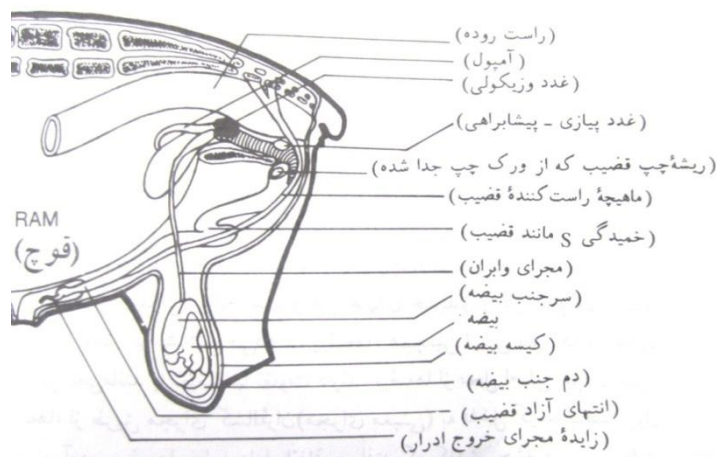 (راست روده)
(آمپول)
(غدد وزیکولی)
(غدد پیازی - پیشابراهی)
(ریشهٔ چپ قضیب که از ورک چپ جدا شده)
(ماهیچهٔ راست‌کنندهٔ قضیب)
(خمیدگی S مانند قضیب)
RAM
(قوچ)
(مجرای وابران)
(سرجنب بیضه)
بیضه
(کیسه بیضه)
(دم جنب بیضه)
(انتهای آزاد قضیب)
(زایدهٔ مجرای خروج ادرار)